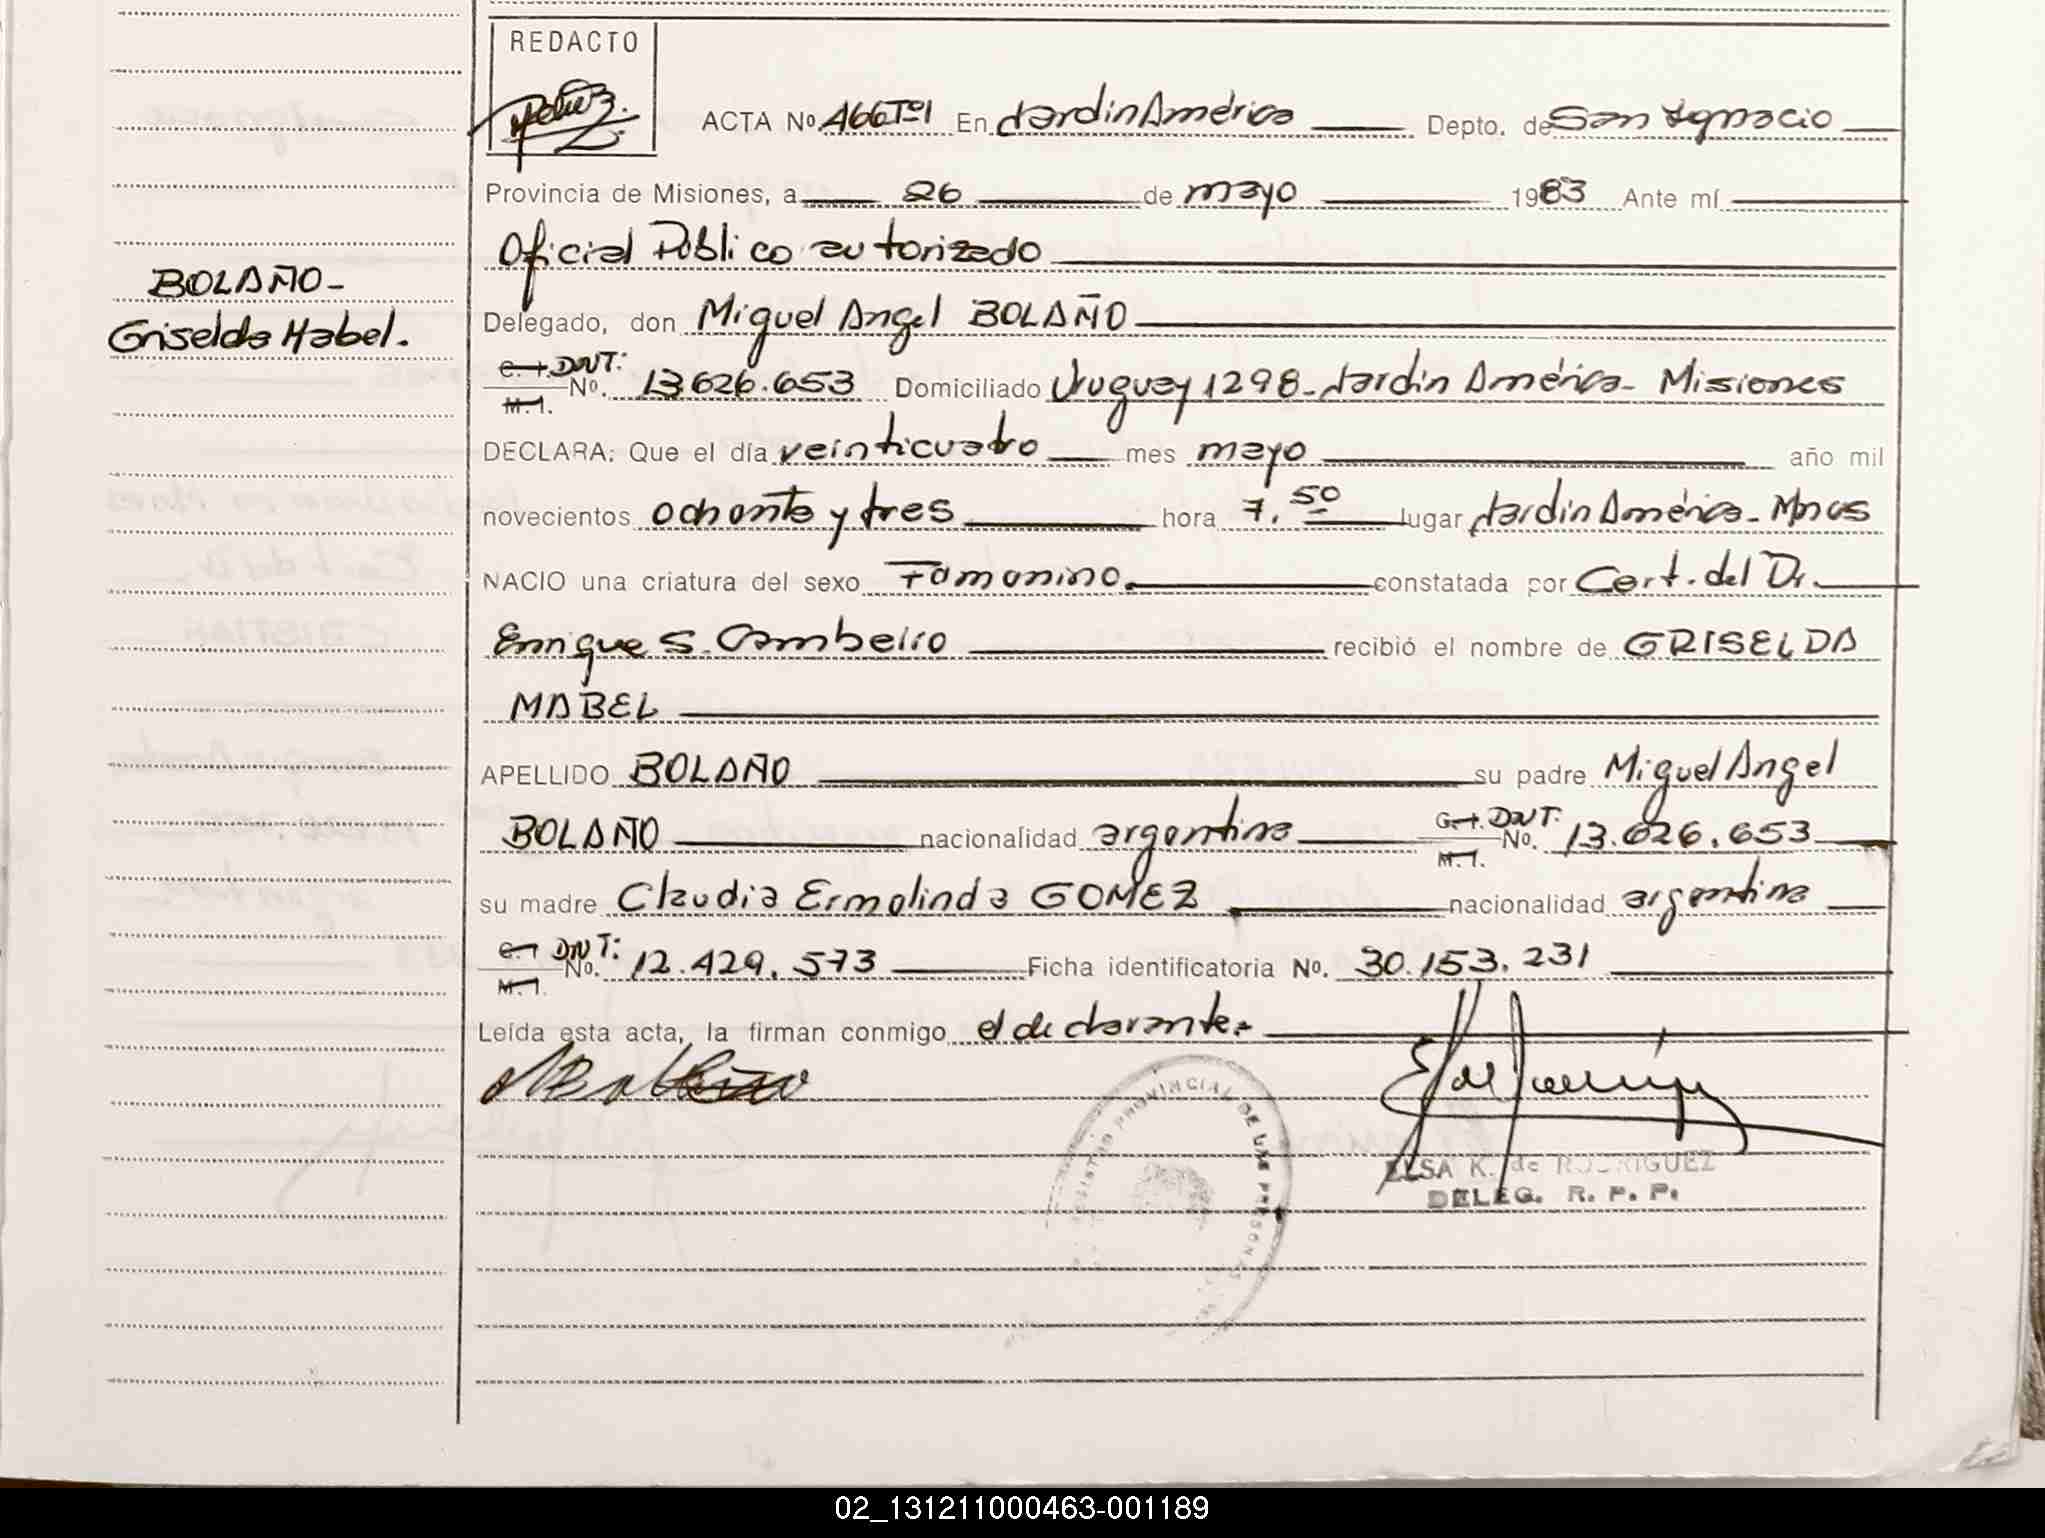 REDACTO
ACTA Nº A66Tº1 En Jardin América Depto. de San Ignacio
Provincia de Misiones, a 26 de mayo 1983 Ante mí
Oficial Público autorizado
BOLAÑO-
Griselda Mabel.
Delegado, don Miguel Angel BOLAÑO
C. I. DNI: M.I. No. 13.626.653 Domiciliado Uruguay 1298- Jardin América- Misiones
DECLARA: Que el día veinticuatro mes mayo año mil
novecientos ochenta y tres hora 7.50 lugar Jardin América- Mnes
NACIO una criatura del sexo Femenino. constatada por Cert. del Dr.
Enrique S. Cambeiro recibió el nombre de GRISELDA
MABEL
APELLIDO BOLAÑO su padre Miguel Angel
BOLAÑO nacionalidad argentina C.I. DNI: M.I. No. 13.626.653
su madre Claudia Ermelinda GOMEZ nacionalidad argentina
C.I. DNI: M.I. No. 12.429.573 Ficha identificatoria No. 30.153.231
Leída esta acta, la firman conmigo el declarante.
REGISTRO PROVINCIAL DE LAS PERSONAS
ELSA K. de RODRIGUEZ
DELEG. R. P. P.
02_131211000463-001189